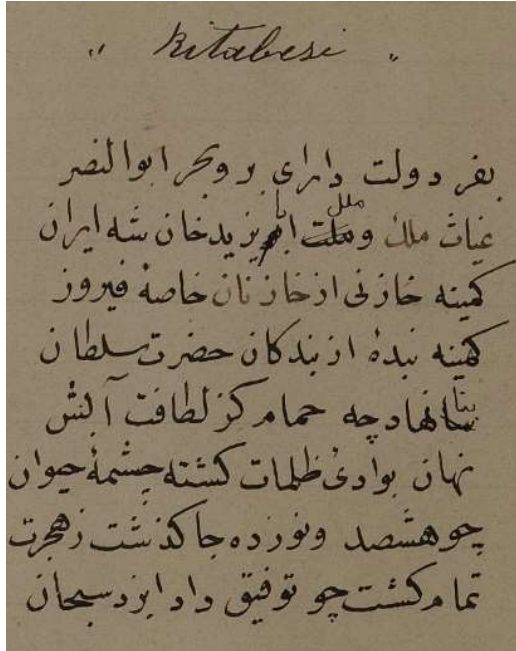 " Kitabesi "
بفر دولت دارای بروبحر ابوالنصر
غیاث ملك و ملت ملل بایزیدخان شه ایران
کمینه خازنی ازخازنان خاصهٔ فیروز
کمینه بندهٔ ازبندکان حضرت سلطان
بنا نهاد چه حمام کز لطافت آبش
نهان بوادئ ظلمات کشته چشمهٔ حیوان
چو هشصد ونوزده جا کذشت زهجرت
تمام کشت چو توفیق داد ایزد سبحان